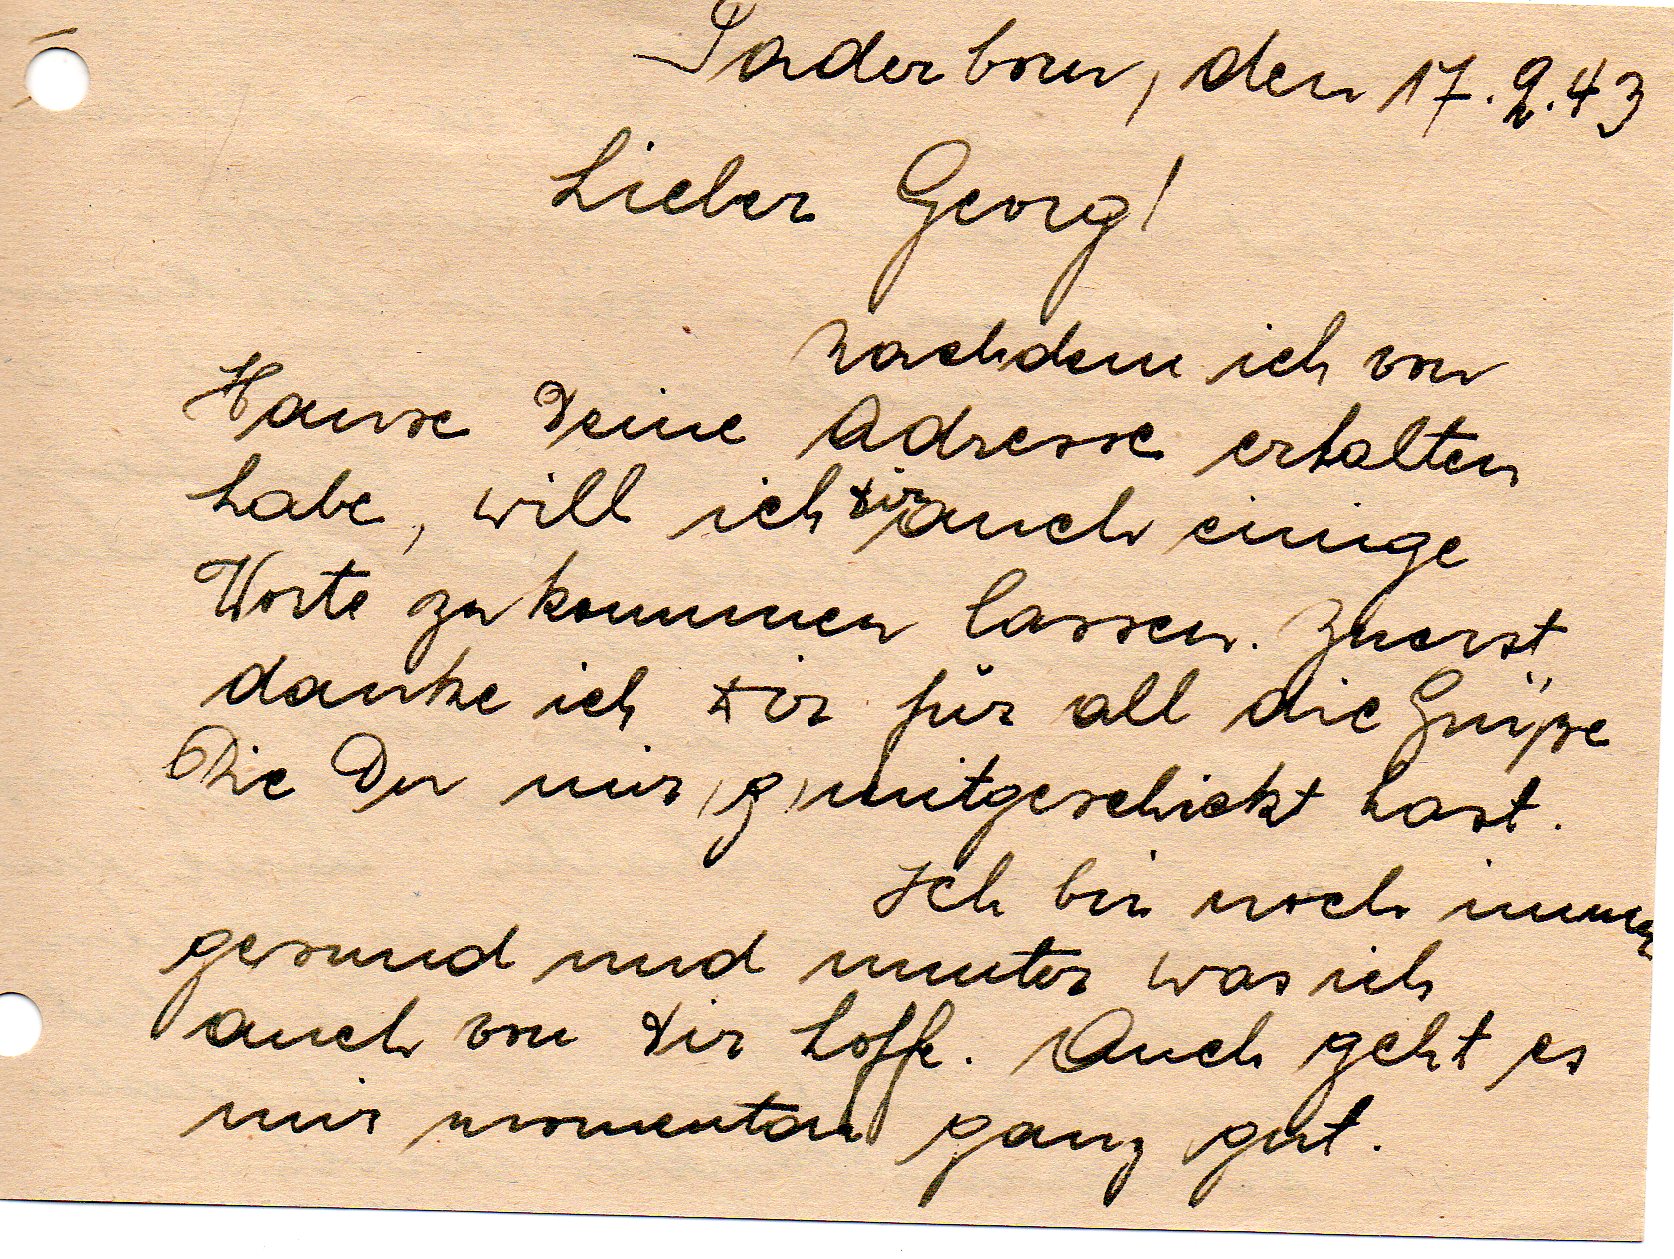 Paderborn, den 17.2.43
Lieber Georg!
Nachdem ich von
Hause Deine Adresse erhalten
habe, will ich Dir auch einige
Worte zukommen lassen. Zuerst
danke ich Dir für all die Grüße
Die Du mir (g) mitgeschickt hast.
Ich bin noch immer
gesund und munter was ich
auch von Dir hoffe. Auch geht es
mir momentan ganz gut.